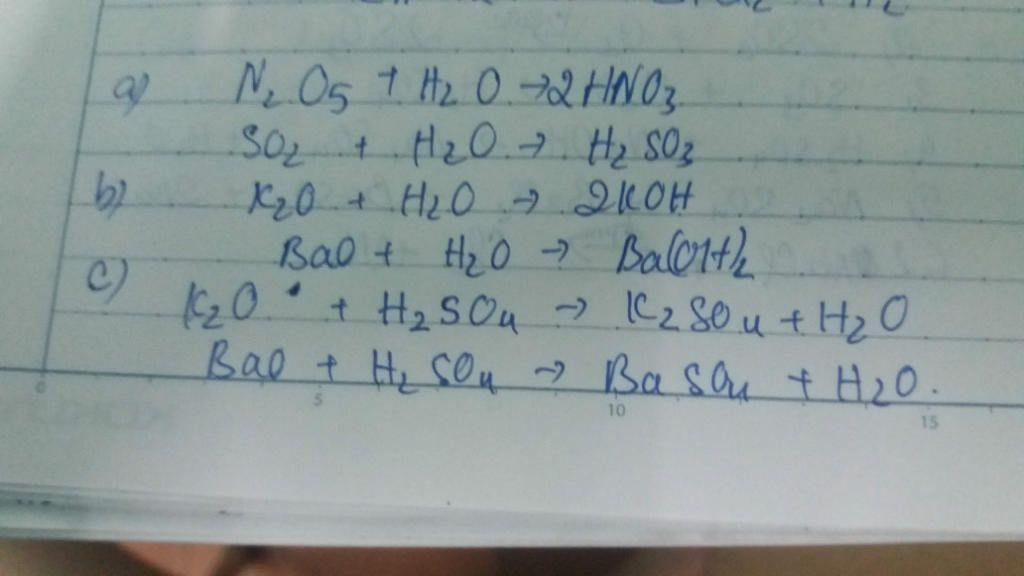 a) N₂O₅ + H₂O → 2HNO₃
SO₂ + H₂O → H₂SO₃
b) K₂O + H₂O → 2KOH
BaO + H₂O → Ba(OH)₂
c) K₂O + H₂SO₄ → K₂SO₄ + H₂O
BaO + H₂SO₄ → BaSO₄ + H₂O.
0 5 10 15